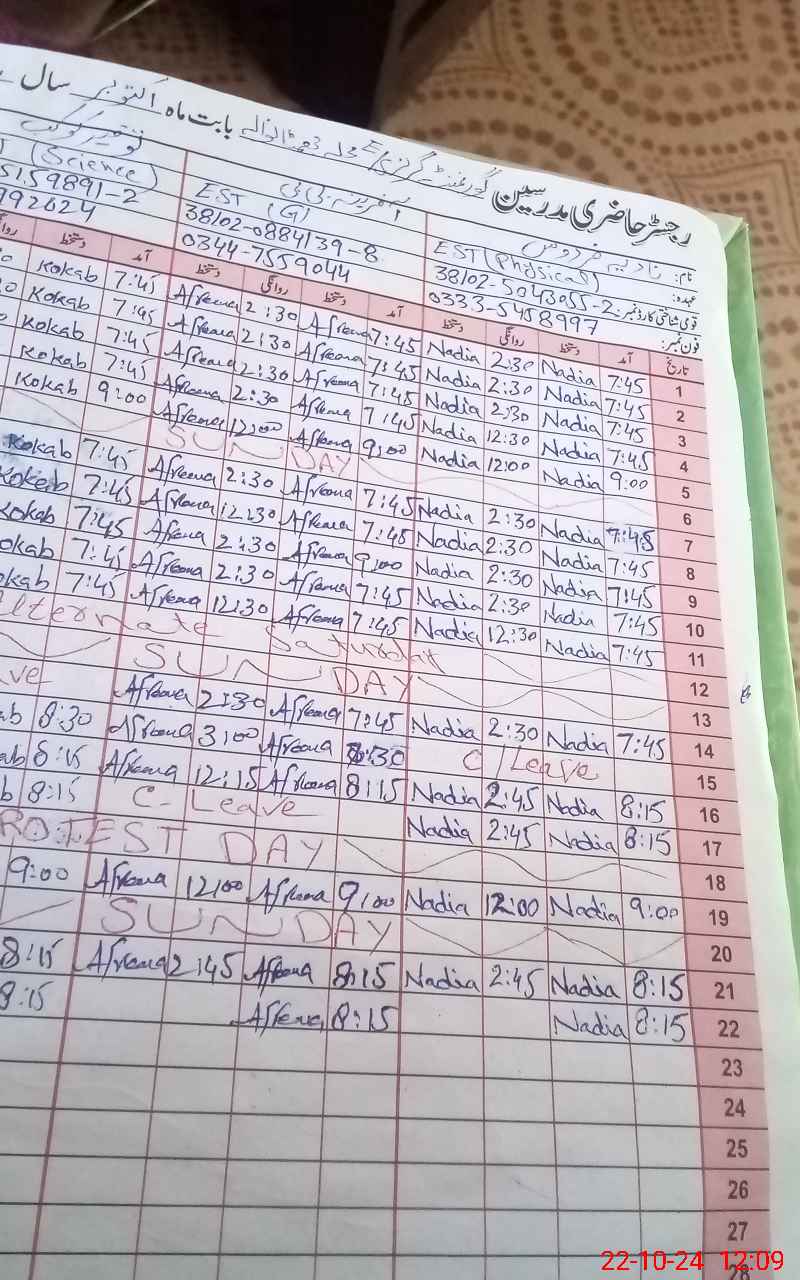 رجسٹر حاضری مدرسین گورنمنٹ گرلز E/S محلہ بابت ماہ اکتوبر سال
نام: نادیہ فردوس
عہدہ: EST (Physical) EST (G) T (Science)
قومی شناختی کارڈ نمبر: 38102-5043055-2 38102-0884139-8 5159891-2
فون نمبر: 0333-5458997 0344-7559044 992624
تاریخ آمد دستخط روانگی دستخط آمد دستخط روانگی دستخط آمد دستخط
Kokab 7:45 Afreena 2:30 Afreena 7:45 Nadia 2:30 Nadia 7:45 1
Kokab 7:45 Afreena 2:30 Afreena 7:45 Nadia 2:30 Nadia 7:45 2
Kokab 7:45 Afreena 2:30 Afreena 7:45 Nadia 2:30 Nadia 7:45 3
Kokab 7:45 Afreena 2:30 Afreena 7:45 Nadia 12:30 Nadia 7:45 4
Kokab 9:00 Afreena 12:00 Afreena 9:00 Nadia 12:00 Nadia 9:00 5
SUNDAY 6
Kokab 7:45 Afreena 2:30 Afreena 7:45 Nadia 2:30 Nadia 7:45 7
Kokab 7:45 Afreena 12:30 Afreena 7:45 Nadia 2:30 Nadia 7:45 8
Kokab 7:45 Afreena 2:30 Afreena 9:00 Nadia 2:30 Nadia 7:45 9
okab 7:45 Afreena 2:30 Afreena 7:45 Nadia 2:30 Nadia 7:45 10
okab 7:45 Afreena 12:30 Afreena 7:45 Nadia 12:30 Nadia 7:45 11
Alternate Saturday 12
SUNDAY 13
ave Afreena 2:30 Afreena 7:45 Nadia 2:30 Nadia 7:45 14
ab 8:30 Afreena 3:00 Afreena 8:30 C/Leave 15
ab 8:15 Afreena 12:15 Afreena 8:15 Nadia 2:45 Nadia 8:15 16
b 8:15 C-Leave Nadia 2:45 Nadia 8:15 17
ROTEST DAY 18
9:00 Afreena 12:00 Afreena 9:00 Nadia 12:00 Nadia 9:00 19
SUNDAY 20
8:15 Afreena 2:45 Afreena 8:15 Nadia 2:45 Nadia 8:15 21
8:15 Afreena 8:15 Nadia 8:15 22
23
24
25
26
27
28
22-10-24 12:09